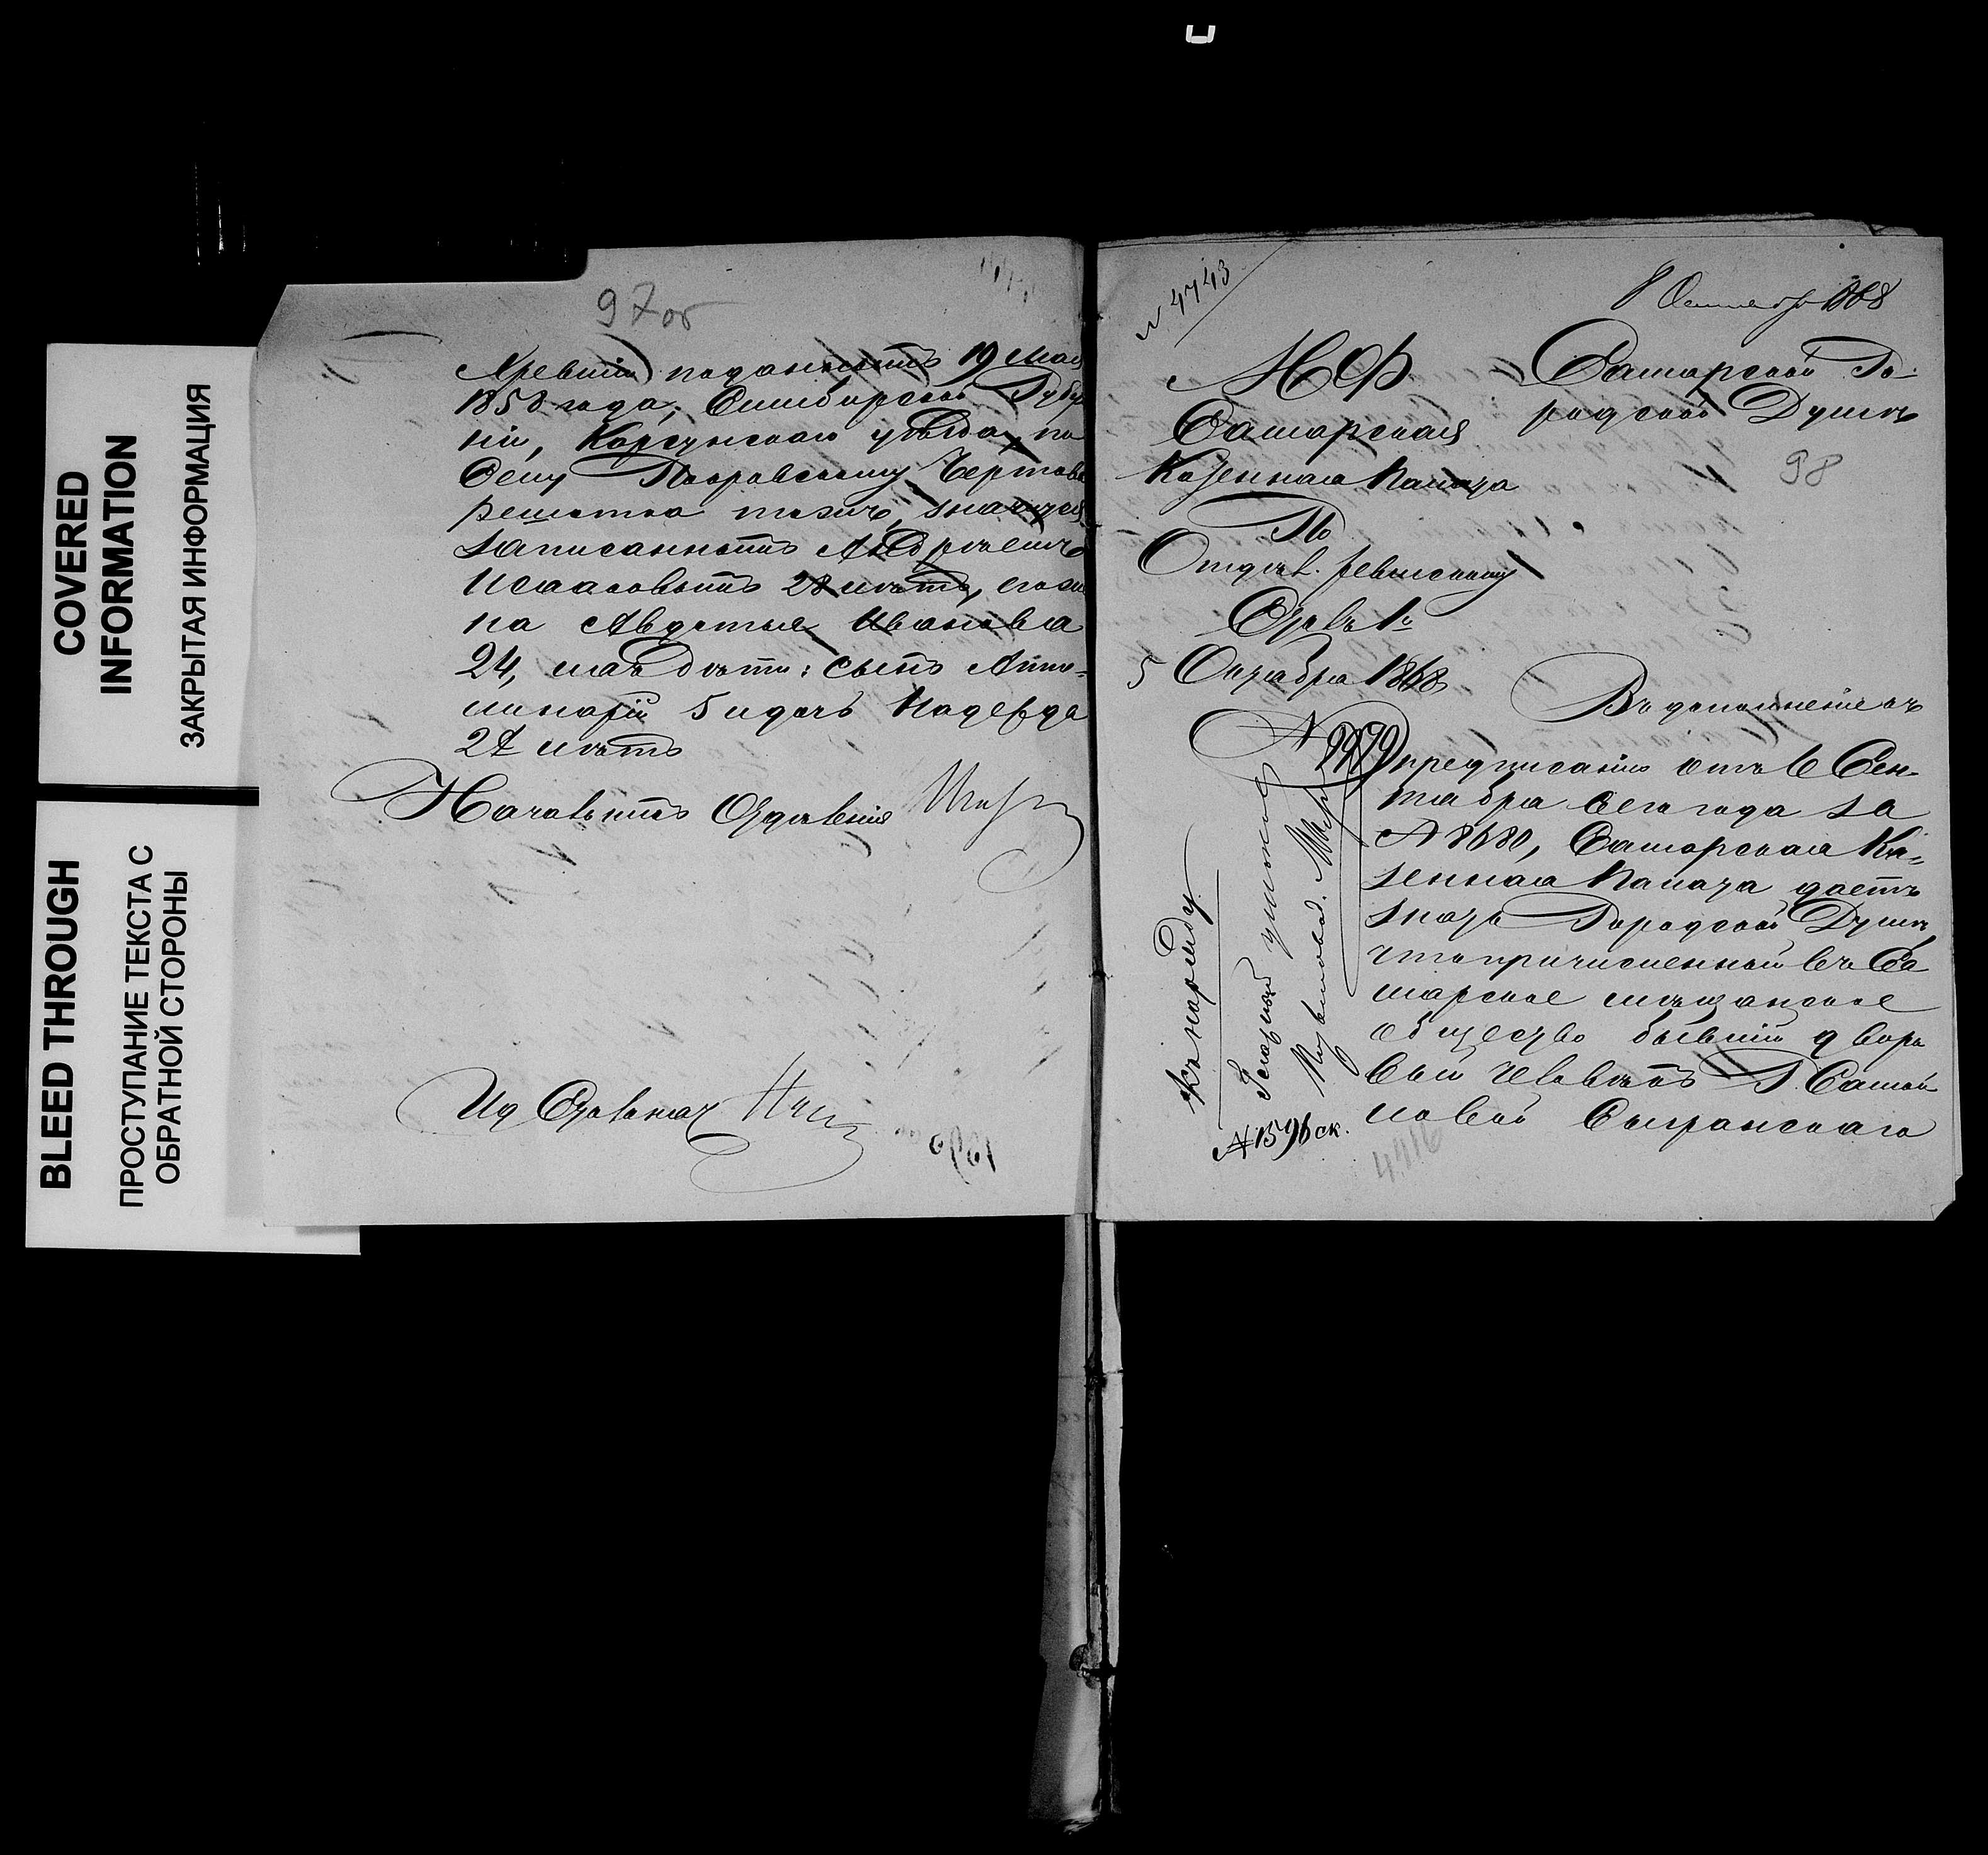 COVERED
INFORMATION
ЗАКРЫТАЯ ИНФОРМАЦИЯ
BLEED THROUGH
ПРОСТУПАНИЕ ТЕКСТА С
ОБРАТНОЙ СТОРОНЫ
97 об
Х ревизіи поданнымъ 19 Мая
1858 года, Симбирской Губер
ніи, Корсунскаго уѣзда, по
Селу Покровскому Чертов
решотка тожъ, значится
записаннымъ Андреемъ
Исааковымъ 28 лѣтъ, его же
на Авдотья Иванова
24, ихъ дѣти: сынъ Аппо-
линарій 5 и дочь Надежда
2х лѣтъ
Начальникъ Отдѣленія
Ид Столонач
№ 4743
8 Октября 1868
М Ф
Самарская
Казенная Палата
По
Отдѣл. ревизскому
Столъ 1й
5 Октября 1868
№ 9979
Самарской Го-
родской Думѣ
98
Въ дополненіе къ
предписанію отъ 6 Сен-
тября сего года за
№ 8680, Самарская Ка-
зенная Палата даетъ
знать Городской Думѣ,
что причисленный въ Са
марское мѣщанское
общество бывшій дворо
вый человѣкъ Г. Самой
ловой Сызранскаго
Къ наряду
№ 1596 ск.
4416